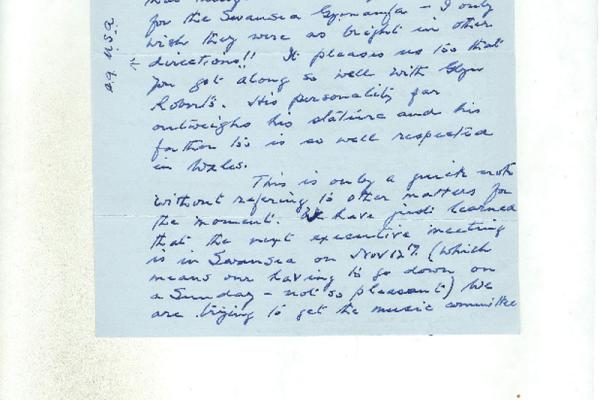 for the Swansea Gymanfa - I only
wish they were as bright in other
directions!! It pleases us too that
you got along so well with Glyn
Roberts. His personality far
outweighs his stature and his
father too is so well respected
in Wales.
This is only a quick note
without refering to other matters for
the moment. We have just learned
that the next executive meeting
is in Swansea on Nov 12th (which
means our having to go down on
a Sunday - not so pleasant) We
are trying to get the music committee
e.g. U.S.A.